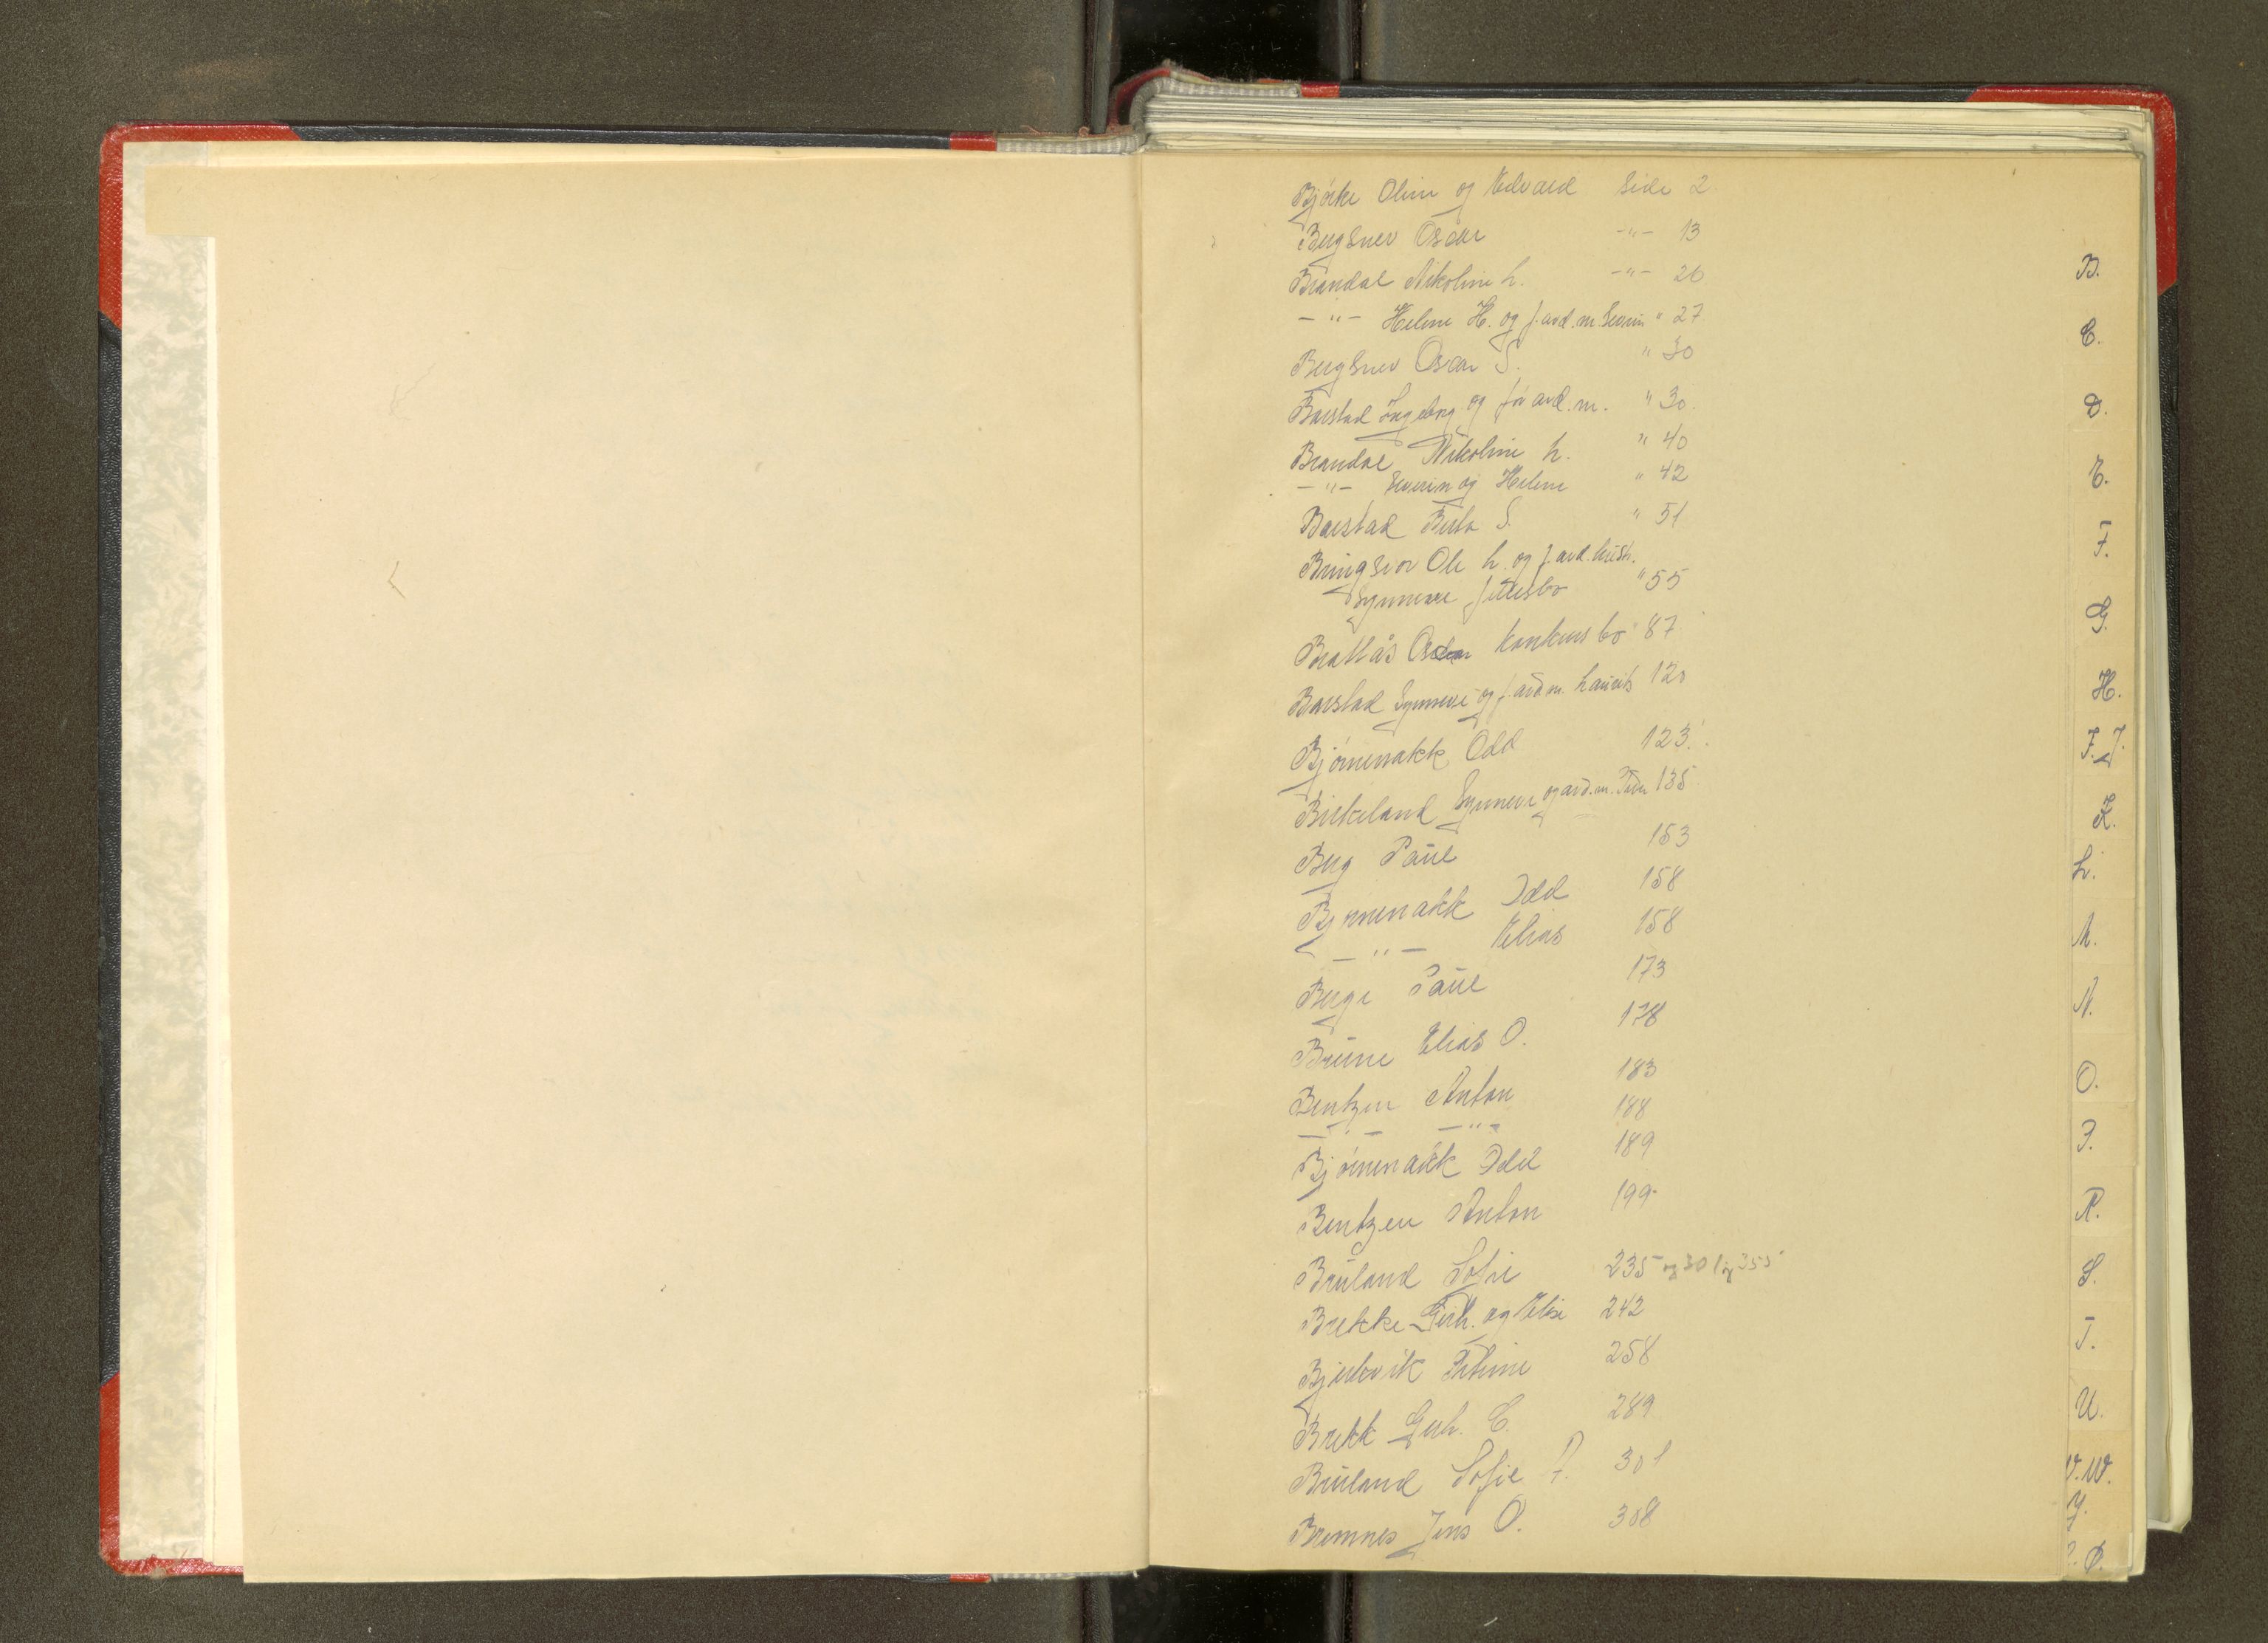 Bjørke Oline og Edvard Side 2.
Bergsnev Oscar -"- 13
Brandal Nikoline L. -"- 26
-"- Helene H. og f. avd. m. Severin " 27
Bergsnev Oscar S. " 30
Barstad Ingeborg og før avd. m. " 30.
Brandal Nikoline L. " 40
-"- Severin og Helene " 42
Barstad Berta S. " 51
Bringsvor Ole L. og f. avd. hustr.
Synneve fellesbo " 55
Brattås Oscar konkursbo " 87
Barstad Synneve og f. avd m. Laurits 120
Bjørnenakk Odd 123.
Birkeland Synneve og avd. m. Peder 135
Berg Paul 153
Bjørnenakk Odd 158
-"- Elias 158
Berge Paul 173
Brune Elias O. 178
Bentzen Anton 183
-"- -"- 188
Bjørnenakk Odd 189
Bentzen Anton 199
Bruland Sofie 235 og 301 og 355
Brekke Gerh. og Elise 242
Bjerkvik Petrine 258
Brekk Gerh. E. 289
Bruland Sofie P. 301
Bremnes Jens O. 308
B.
C.
D.
E.
F.
G.
H.
I. J.
K.
L.
M.
N.
O.
P.
R.
S.
T.
U.
V. W.
Y.
Ø.